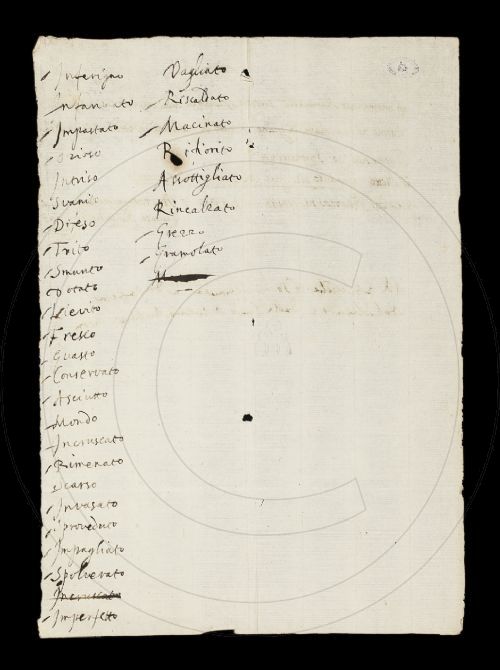 Inferigno
Infarinato
Impastato
Orioso
Intriso
Svanito
Difeso
Trito
Smunto
Dotato
Lievito
Fresco
Guasto
Conservato
Asciutto
Mondo
Incruscato
Rimenato
Scarso
Invasato
Sproveduto
Impagliato
Spolverato
Incruscato
Imperfetto
Vagliato
Riscaldato
Macinato
Rifiorito
Assottigliato
Rincalzato
Grezzo
Gramolato